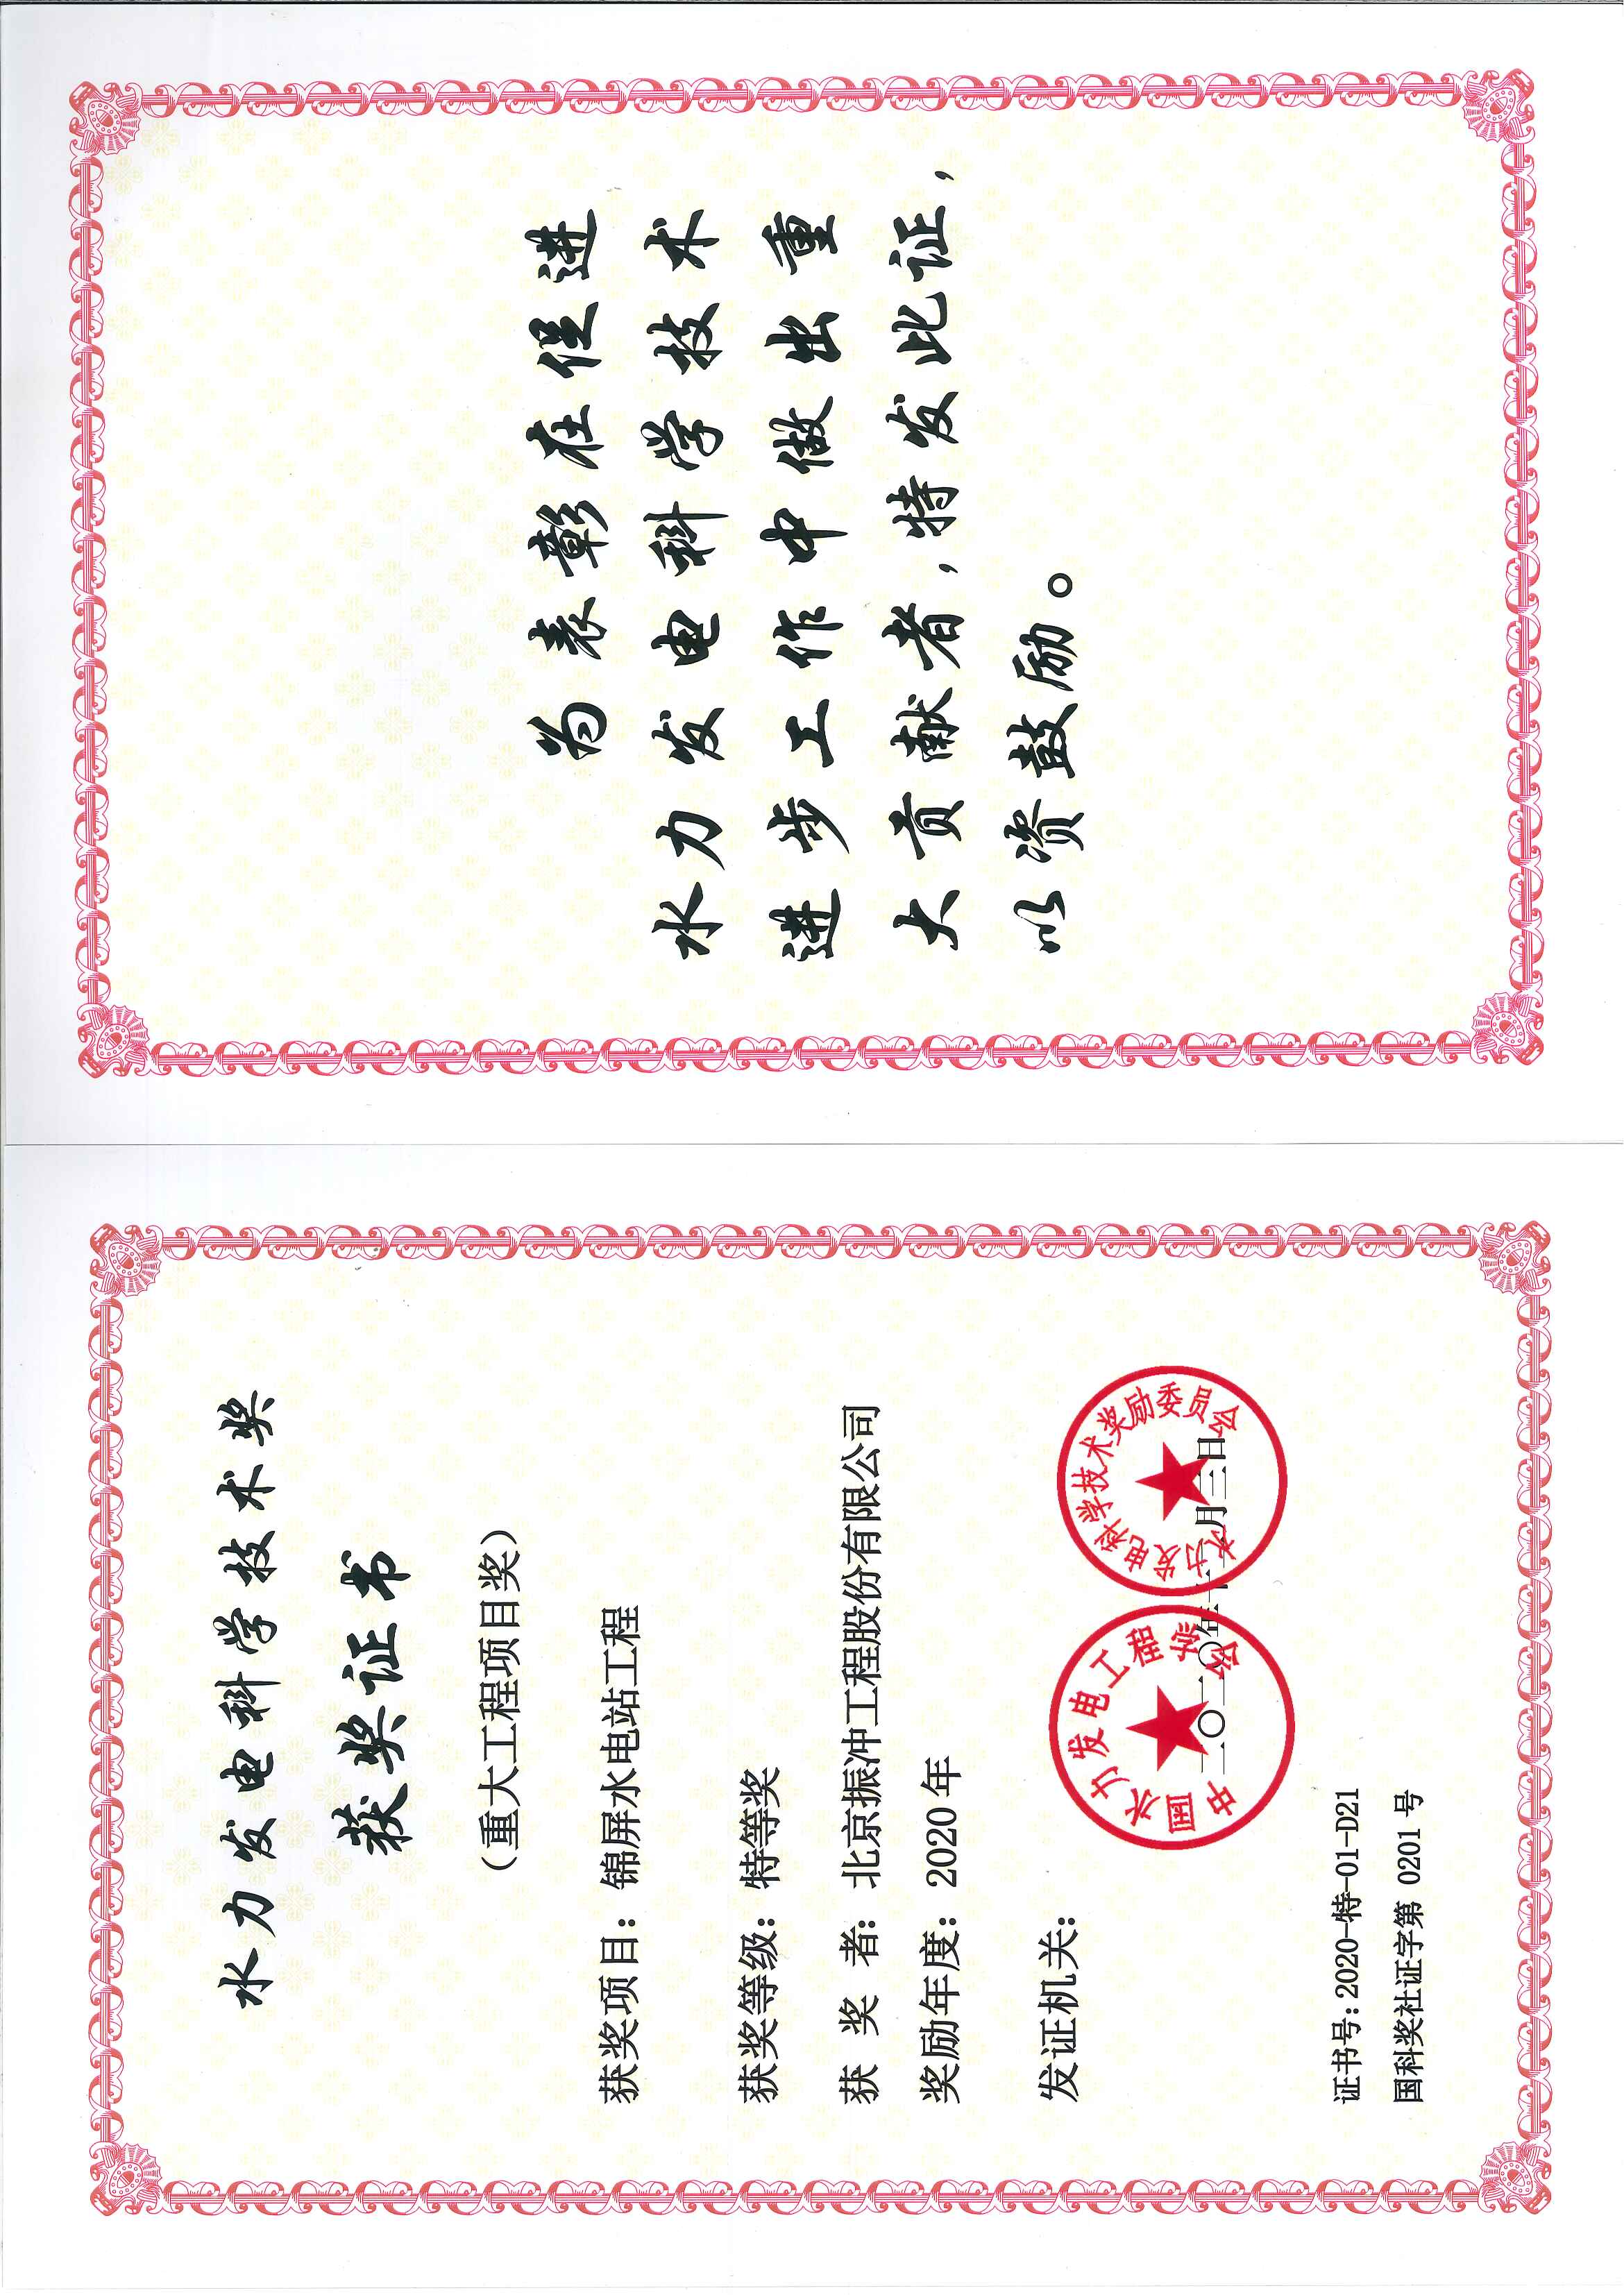 水力发电科学技术奖
获奖证书
（重大工程项目奖）
获奖项目：锦屏水电站工程
获奖等级：特等奖
获 奖 者：北京振冲工程股份有限公司
奖励年度：2020 年
发证机关：
中国水力发电工程学会
水力发电科学技术奖励委员会
二〇二〇年 月三日
证书号：2020-特-01-D21
国科奖社证字第 0201 号
为表彰在促进
水力发电科学技术
进步工作中做出重
大贡献者，特发此证，
以资鼓励。